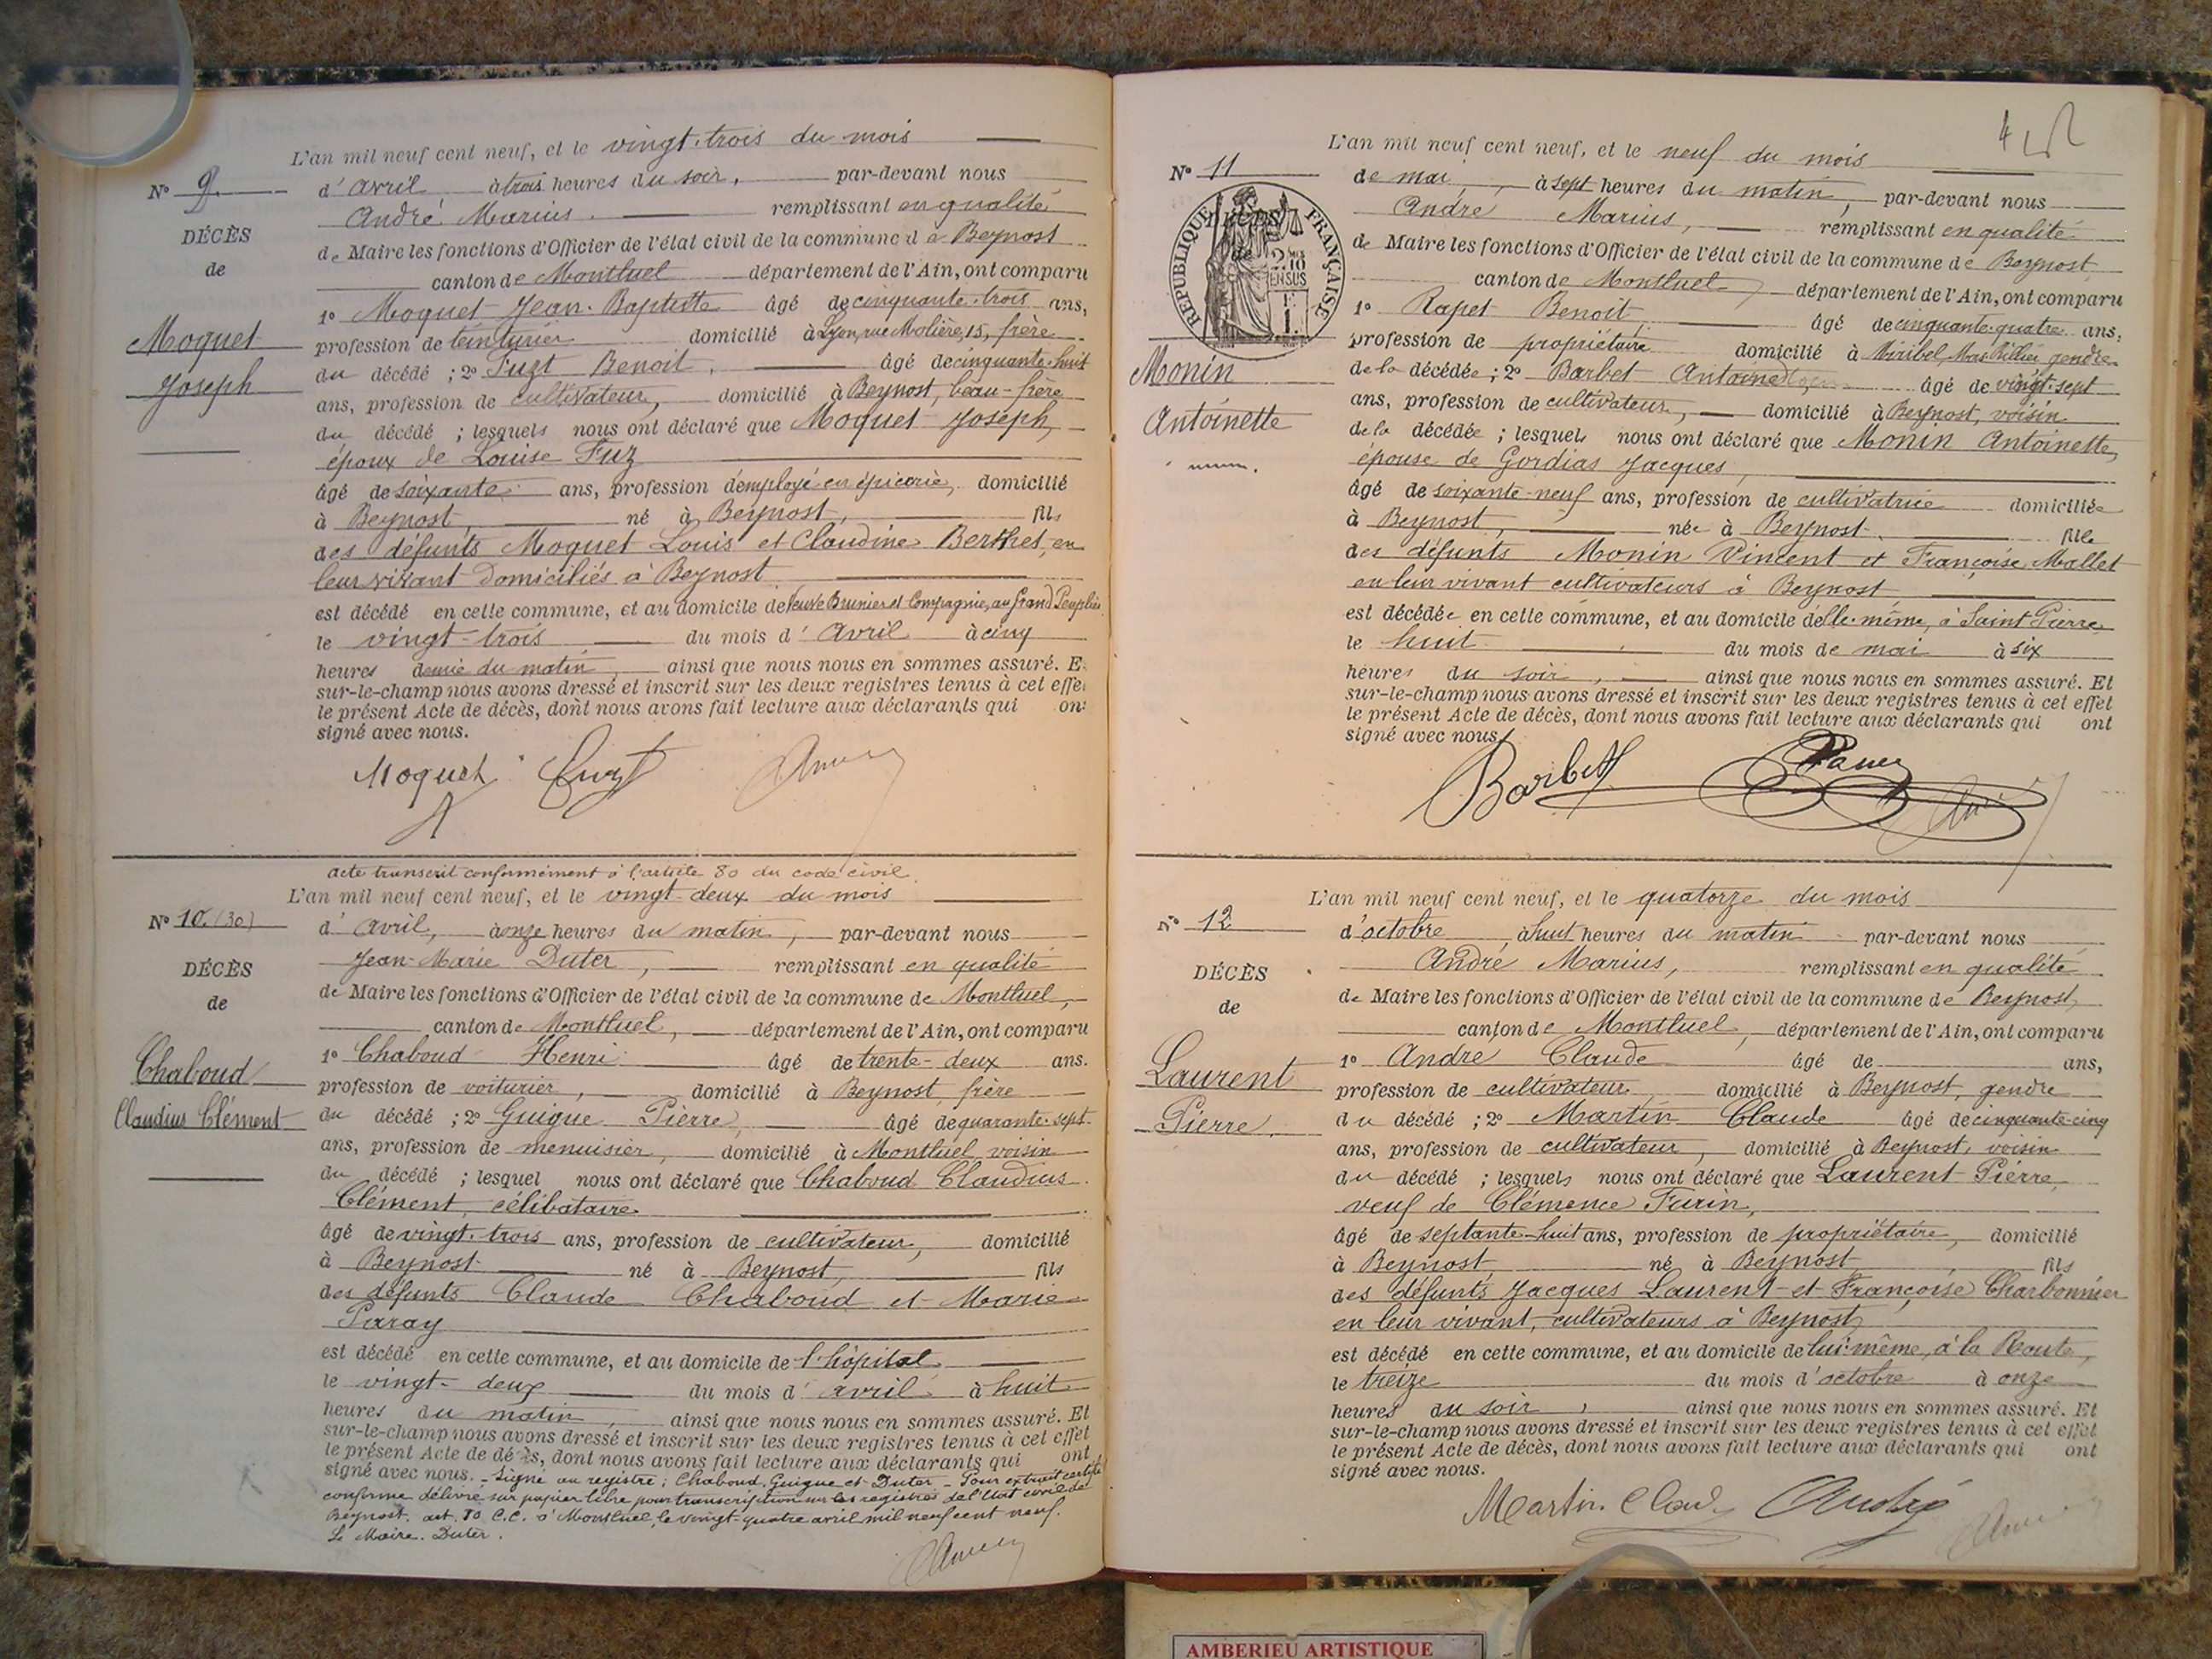 L'an mil neuf cent neuf, et le vingt-trois du mois
N° 9
d'avril à trois heures du soir, par-devant nous
André Marius remplissant en qualité
DÉCÈS
de Maire les fonctions d'Officier de l'état civil de la commune de Beynost
de
canton de Montluel département de l'Ain, ont comparu
1° Moquet Jean-Baptiste âgé de cinquante-trois ans,
Moquet
profession de teinturier domicilié à Lyon, rue Molière, 15, frère
Joseph
du décédé ; 2° Fuzt Benoit, âgé de cinquante-huit
ans, profession de cultivateur, domicilié à Beynost, beau-frère
du décédé ; lesquels nous ont déclaré que Moquet Joseph,
époux de Louise Fuz
âgé de soixante ans, profession d'employé en épicerie, domicilié
à Beynost, né à Beynost, fils
des défunts Moquet Louis et Claudine Berthet, en
leur vivant domiciliés à Beynost
est décédé en cette commune, et au domicile de Veuve Brunier et Compagnie, au Grand Peuplier
le vingt-trois du mois d'avril à cinq
heures demie du matin, ainsi que nous nous en sommes assuré. E
sur-le-champ nous avons dressé et inscrit sur les deux registres tenus à cet effe
le présent Acte de décès, dont nous avons fait lecture aux déclarants qui on
signé avec nous.
Moquet Fuzt
acte transcrit conformément à l'article 80 du code civil.
L'an mil neuf cent neuf, et le vingt-deux du mois
N° 10 (30)
d'avril, à onze heures du matin, par-devant nous
Jean-Marie Duter, remplissant en qualité
DÉCÈS
de Maire les fonctions d'Officier de l'état civil de la commune de Montluel,
de
canton de Montluel, département de l'Ain, ont comparu
1° Chaboud Henri âgé de trente-deux ans.
Chaboud
profession de voiturier, domicilié à Beynost, frère
Claudius Clément
du décédé ; 2° Guigue Pierre, âgé de quarante-sept
ans, profession de menuisier, domicilié à Montluel, voisin
du décédé ; lesquel nous ont déclaré que Chaboud Claudius
Clément, célibataire
âgé de vingt-trois ans, profession de cultivateur, domicilié
à Beynost né à Beynost, fils
des défunts Claude Chaboud et Marie
Paray
est décédé en cette commune, et au domicile de l'hôpital
le vingt-deux du mois d'avril à huit
heures du matin, ainsi que nous nous en sommes assuré. Et
sur-le-champ nous avons dressé et inscrit sur les deux registres tenus à cet effet
le présent Acte de décès, dont nous avons fait lecture aux déclarants qui ont
signé avec nous. - Signé au registre : Chaboud, Guigue et Duter - Pour extrait certifié
conforme délivré sur papier libre pour transcription sur les registres de l'Etat civil de
Beynost. art. 80 C.C. à Montluel, le vingt-quatre avril mil neuf cent neuf.
Le Maire. Duter.
L'an mil neuf cent neuf, et le neuf du mois
N° 11
de mai, à sept heures du matin, par-devant nous
André Marius, remplissant en qualité
RÉPUBLIQUE FRANÇAISE
de Maire les fonctions d'Officier de l'état civil de la commune de Beynost
canton de Montluel département de l'Ain, ont comparu
1° Rapet Benoit âgé de cinquante-quatre ans,
profession de propriétaire domicilié à Miribel, Mas Rillier, gendre
Monin
de la décédée ; 2° Barbet Antoine âgé de vingt-sept
Antoinette
ans, profession de cultivateur, domicilié à Beynost, voisin
de la décédée ; lesquels nous ont déclaré que Monin Antoinette,
épouse de Gordias Jacques,
âgé de soixante-neuf ans, profession de cultivatrice domiciliée
à Beynost, née à Beynost fille
des défunts Monin Vincent et Françoise Mallet
en leur vivant cultivateurs à Beynost
est décédée en cette commune, et au domicile d'elle-même, à Saint Pierre
le huit du mois de mai à six
heures du soir, ainsi que nous nous en sommes assuré. Et
sur-le-champ nous avons dressé et inscrit sur les deux registres tenus à cet effet
le présent Acte de décès, dont nous avons fait lecture aux déclarants qui ont
signé avec nous.
Barbet
L'an mil neuf cent neuf, et le quatorze du mois
N° 12
d'octobre à huit heures du matin par-devant nous
André Marius, remplissant en qualité
DÉCÈS
de Maire les fonctions d'Officier de l'état civil de la commune de Beynost,
de
canton de Montluel, département de l'Ain, ont comparu
1° André Claude âgé de ans,
Laurent
profession de cultivateur, domicilié à Beynost, gendre
Pierre
du décédé ; 2° Martin Claude âgé de cinquante-cinq
ans, profession de cultivateur, domicilié à Beynost, voisin
du décédé ; lesquels nous ont déclaré que Laurent Pierre,
veuf de Clémence Furin,
âgé de septante-huit ans, profession de propriétaire, domicilié
à Beynost né à Beynost, fils
des défunts Jacques Laurent et Françoise Charbonnier
en leur vivant, cultivateurs à Beynost
est décédé en cette commune, et au domicile de lui-même, à la Route,
le treize du mois d'octobre à onze
heures du soir, ainsi que nous nous en sommes assuré. Et
sur-le-champ nous avons dressé et inscrit sur les deux registres tenus à cet effet
le présent Acte de décès, dont nous avons fait lecture aux déclarants qui ont
signé avec nous.
Martin Claude André
AMBERIEU ARTISTIQUE